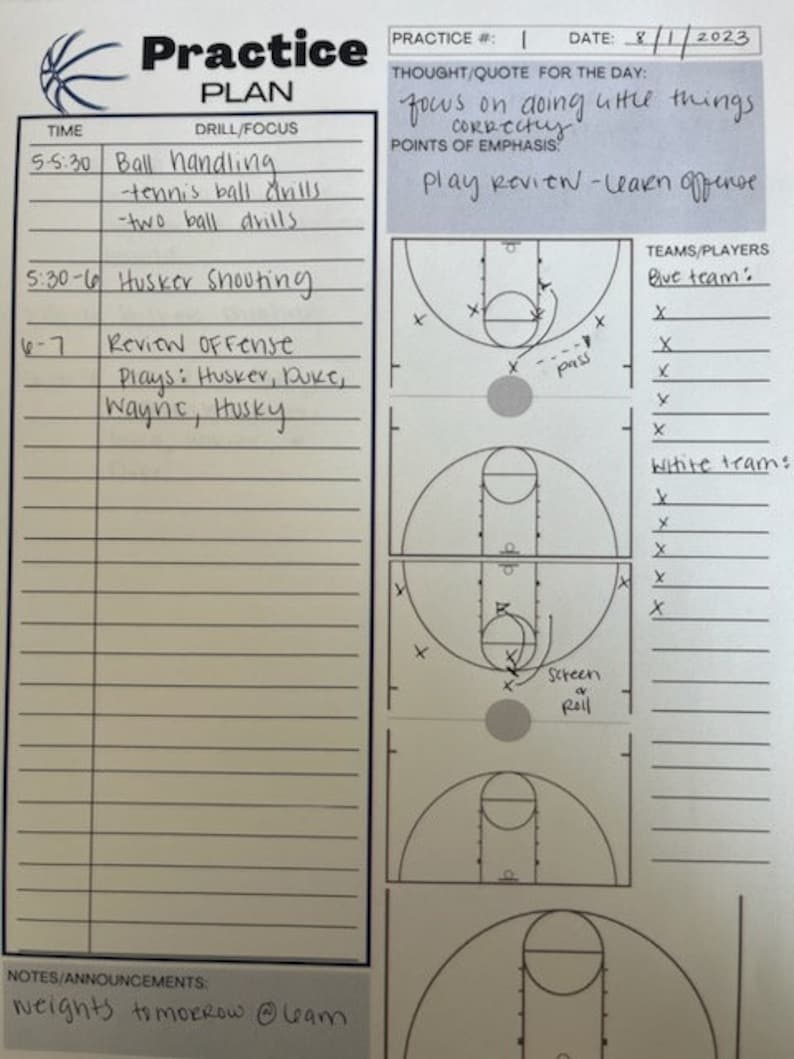 Practice
PLAN
PRACTICE #: 1 DATE: 8/1/2023
THOUGHT/QUOTE FOR THE DAY:
focus on doing little things
correctly
POINTS OF EMPHASIS:
Play Review - learn offense
TIME DRILL/FOCUS
5-5:30 Ball handling
-tennis ball drills
-two ball drills
5:30-6 Husker Shooting
6-7 Review OFFense
Plays: Husker, Duke,
Wayne, Husky
NOTES/ANNOUNCEMENTS:
weights tomorrow @ 6am
x x x x
x
pass
x x
x
x
x
Screen
&
Roll
TEAMS/PLAYERS
Blue team:
x
x
x
x
x
White team:
x
x
x
x
x